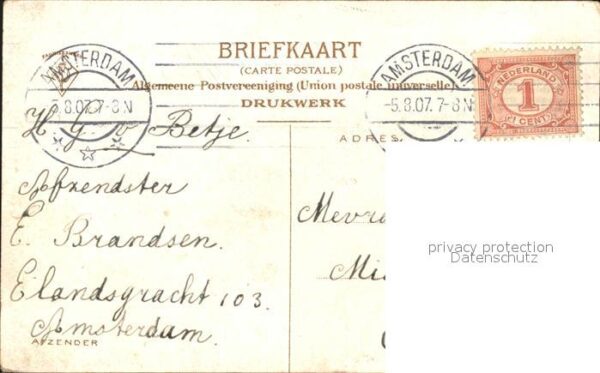 BRIEFKAART
(CARTE POSTALE)
Algemeene Postvereeniging (Union postale universelle)
DRUKWERK
AMSTERDAM
5.8.07. 7-8N
AMSTERDAM
-5.8.07. 7-8N
NEDERLAND
1
CENT
H G v Betje.
ADRES
Afzendster
E. Brandsen.
Elandsgracht 103.
Amsterdam.
AFZENDER
Mevr
Mi
privacy protection
Datenschutz